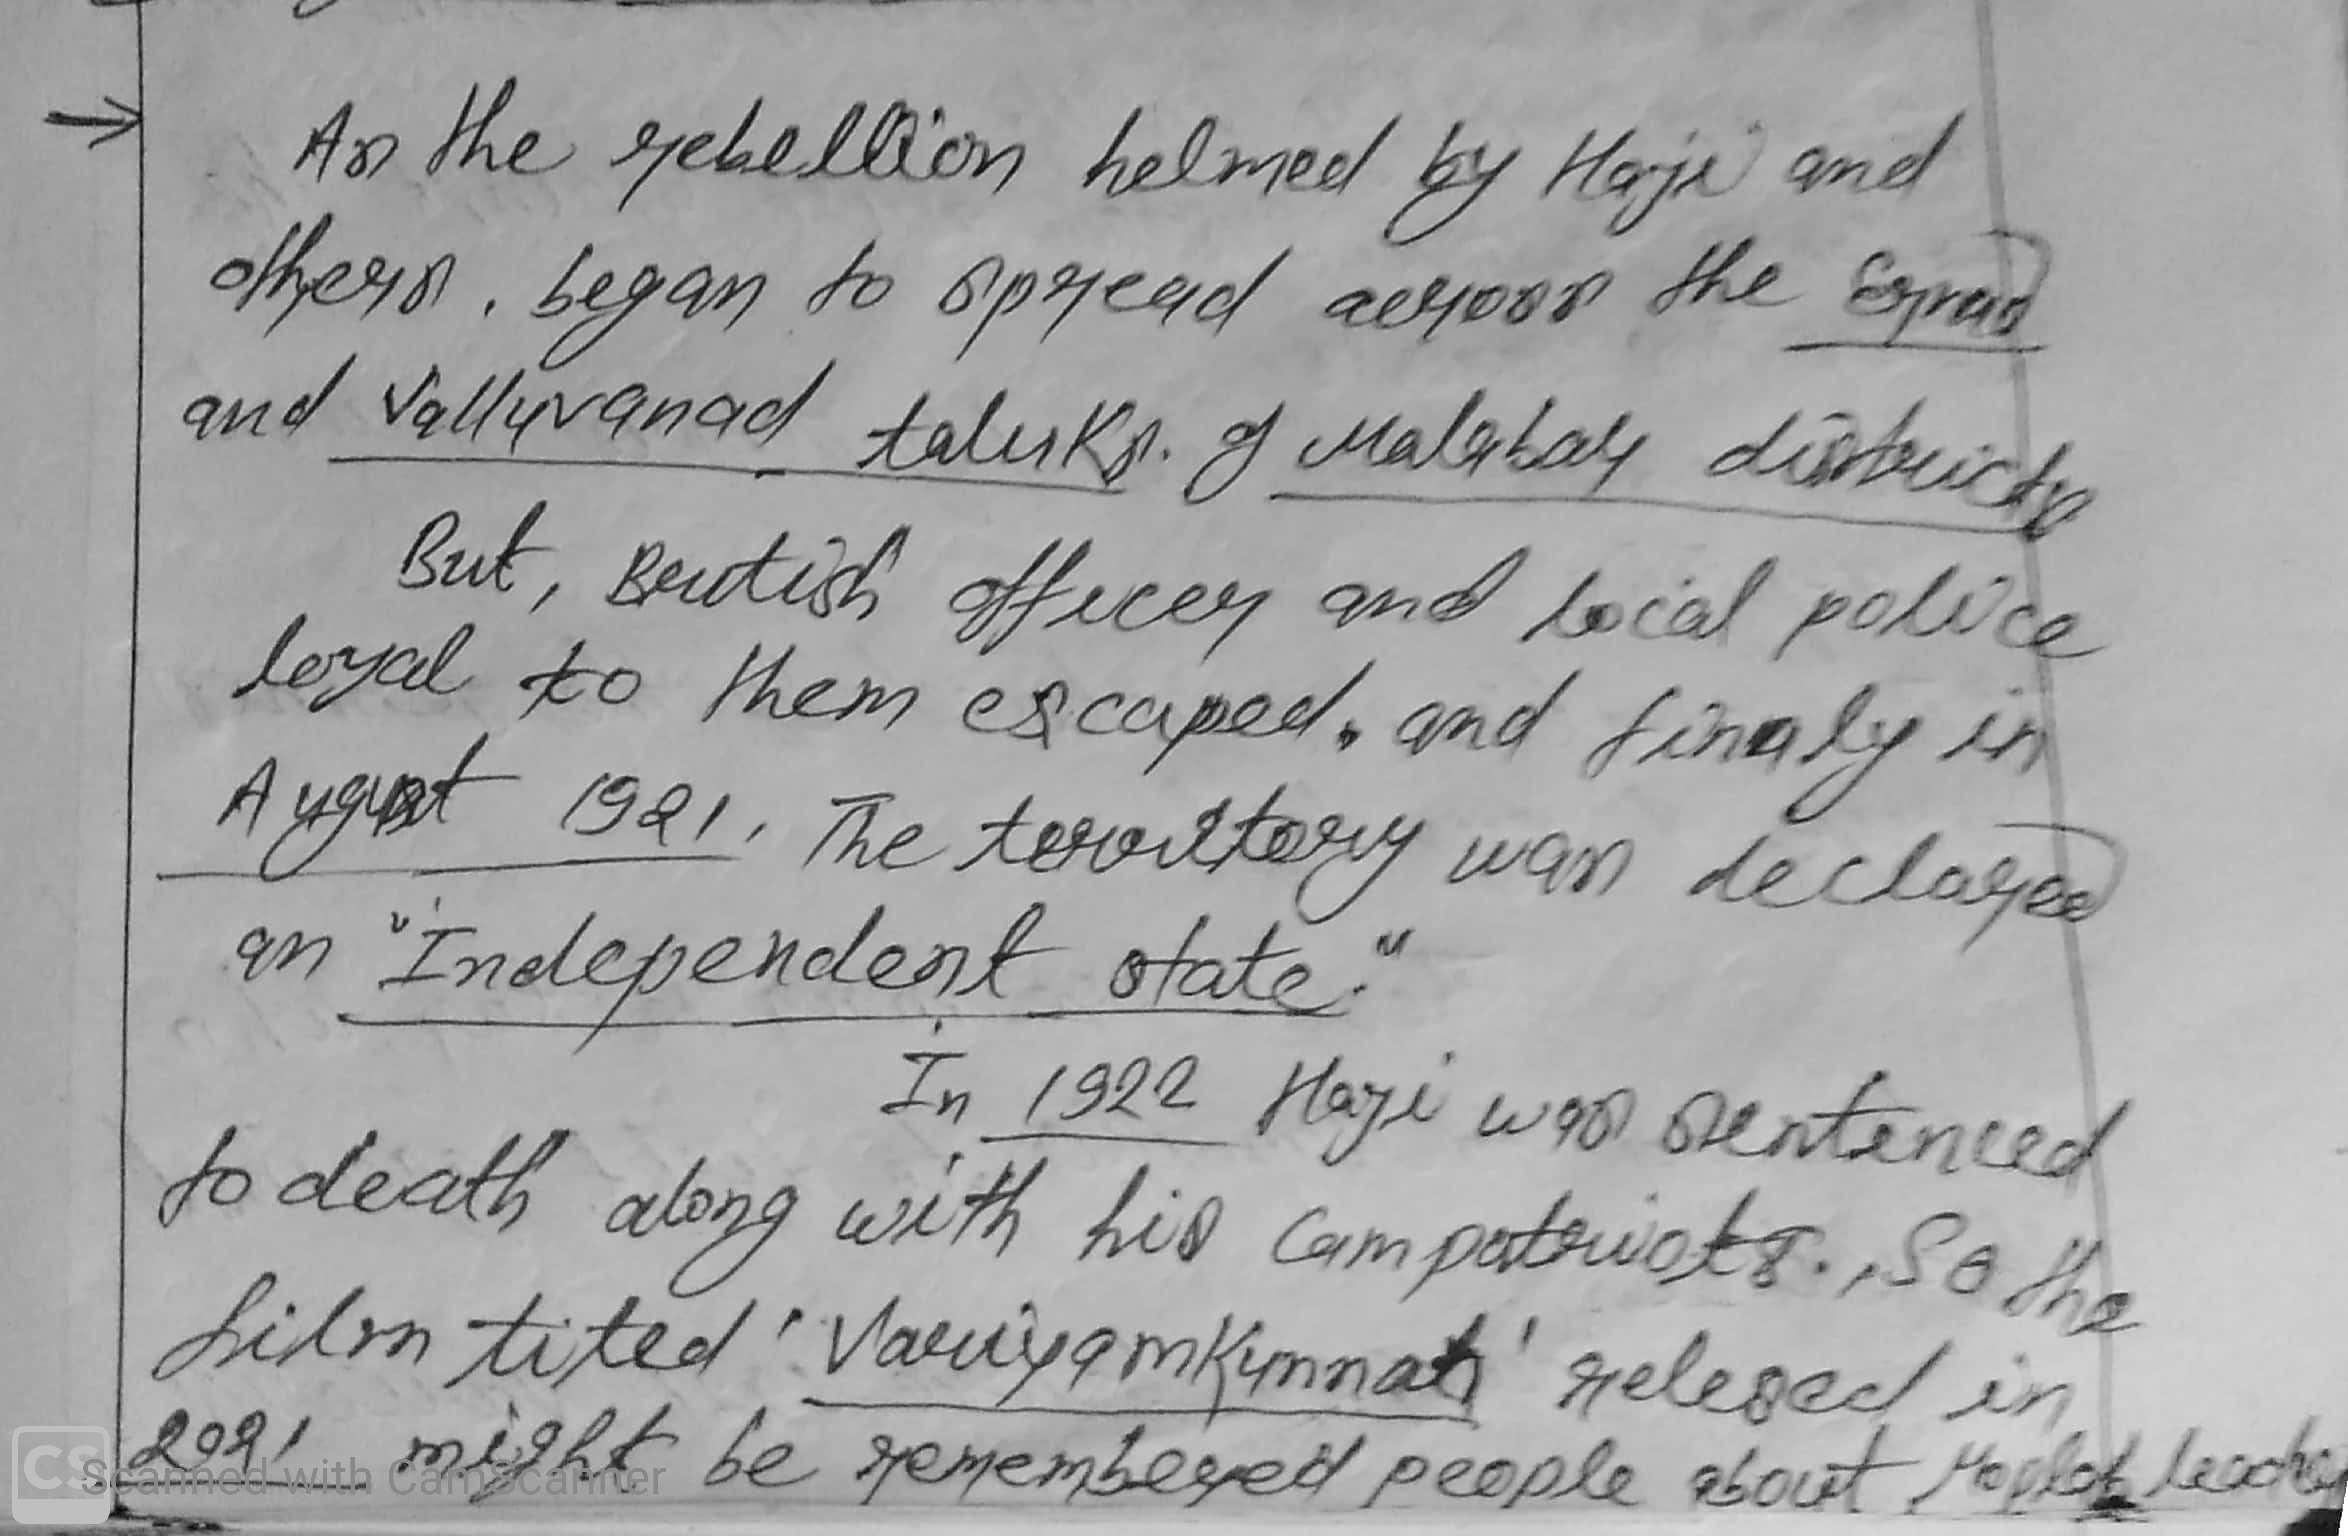 → As the rebellion helmed by Haji and
others, began to spread across the Ernad
and Valluvanad taluks. of Malabar districts
But, British officer and local police
loyal to them escaped, and finaly in
August 1921, The territory was declared
an "Independent state."
In 1922 Haji was sentenced
to death along with his Campatriots., So the
film tited 'Variyamkunnath' relesed in
2021 might be remembered people about Moplah leader
CS Scanned with CamScanner